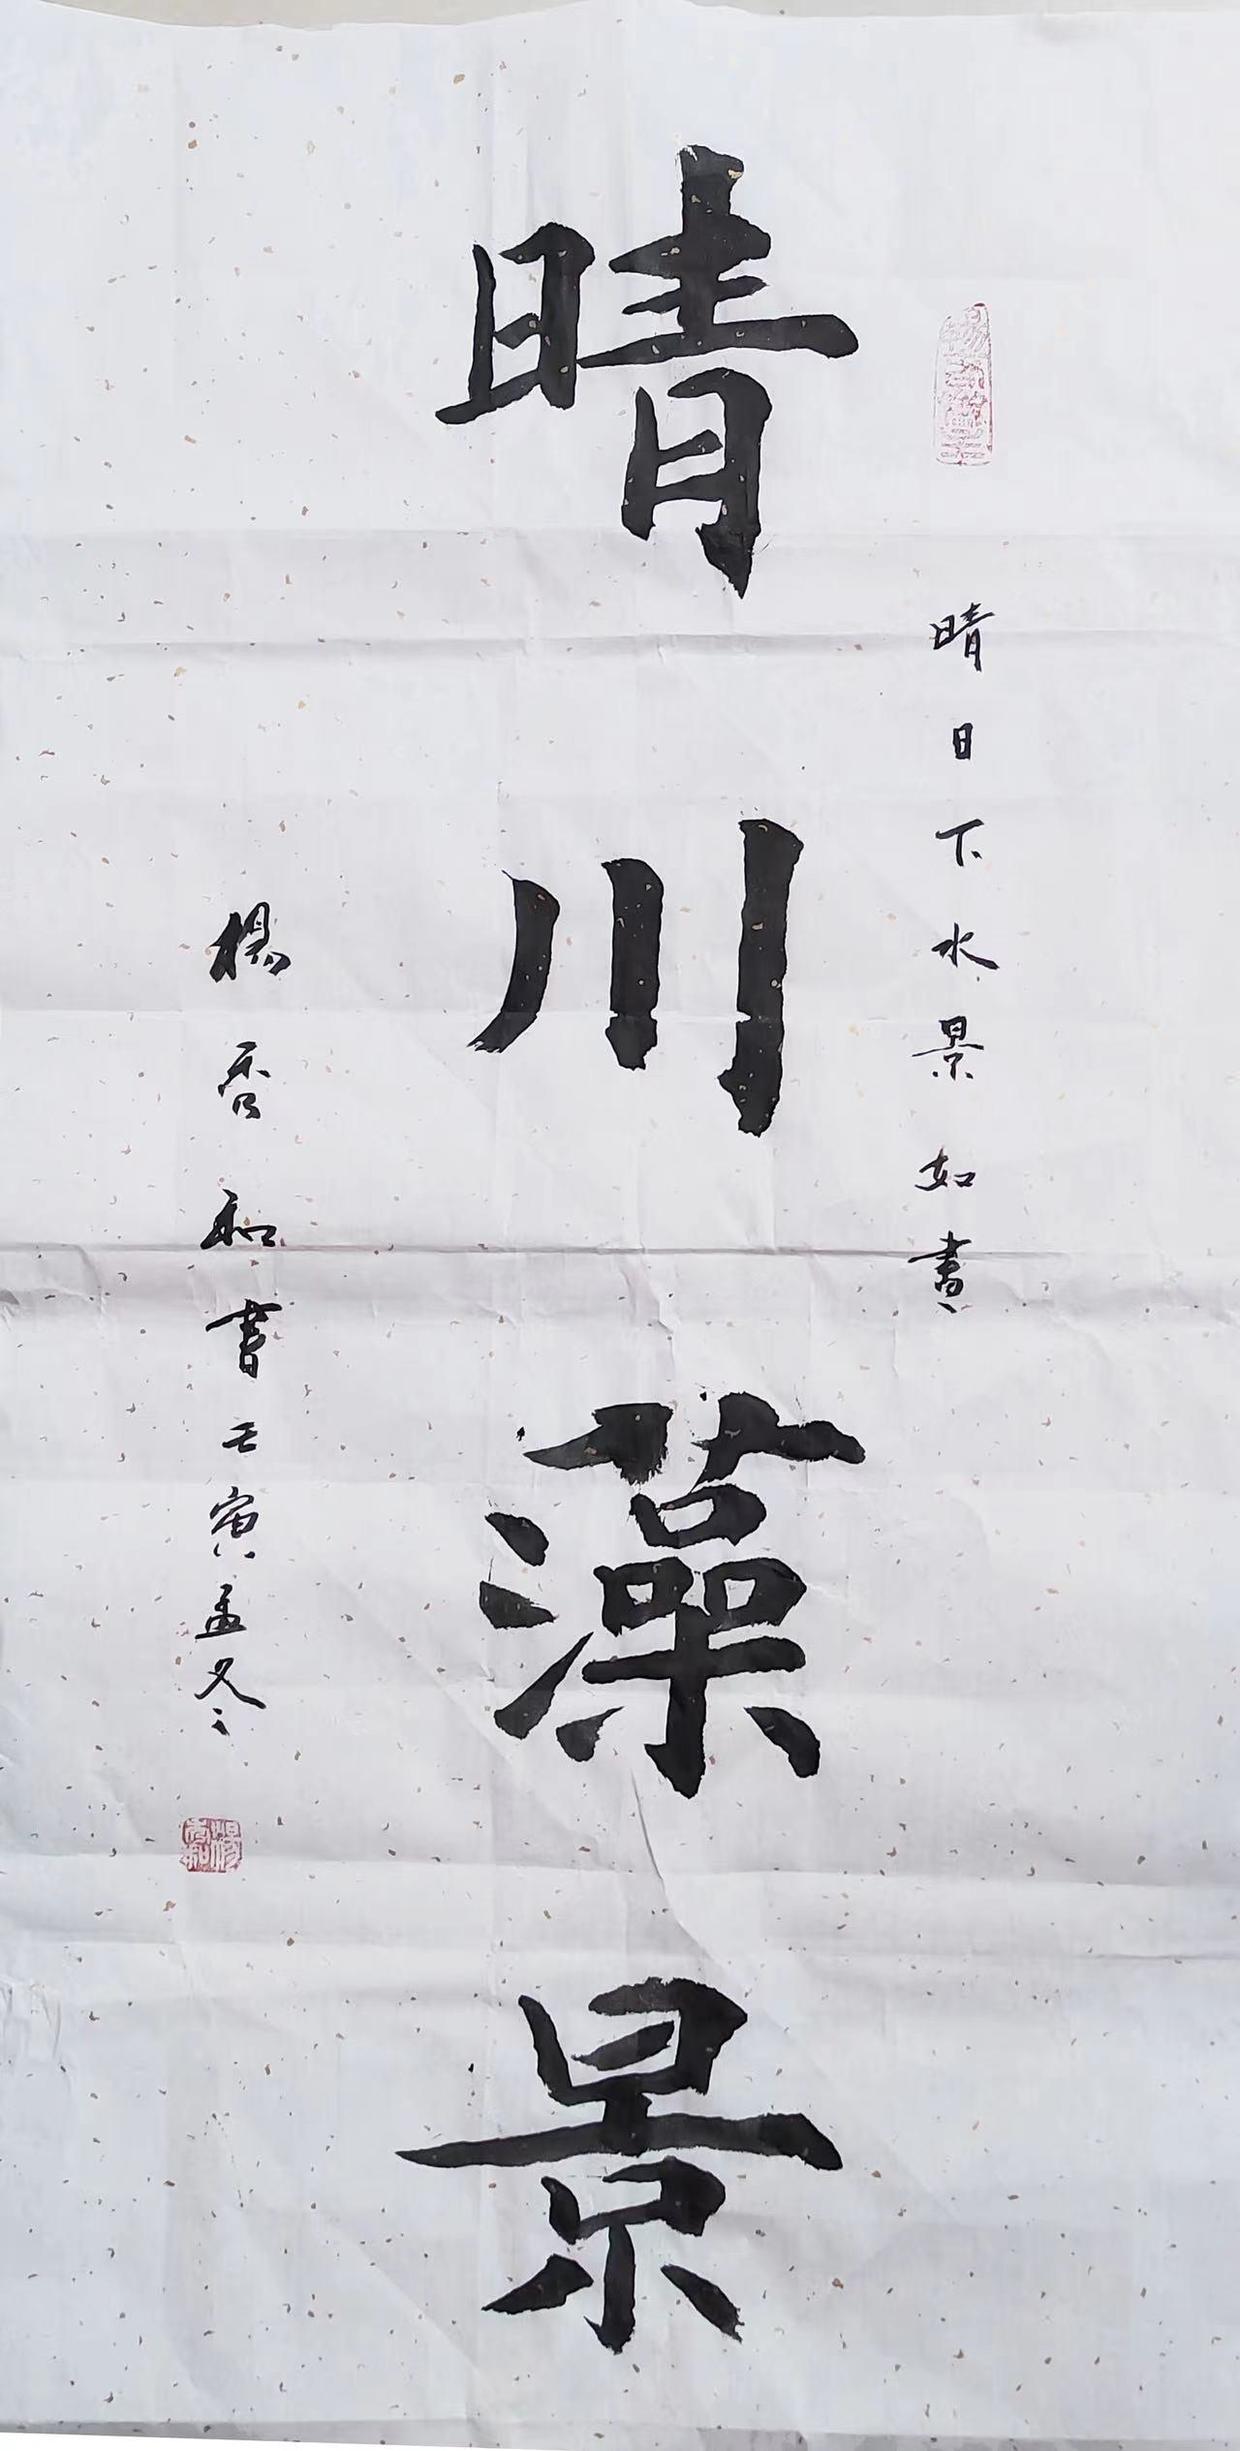 晴日下水景如畫
晴川藻景
楊香和書壬寅孟冬